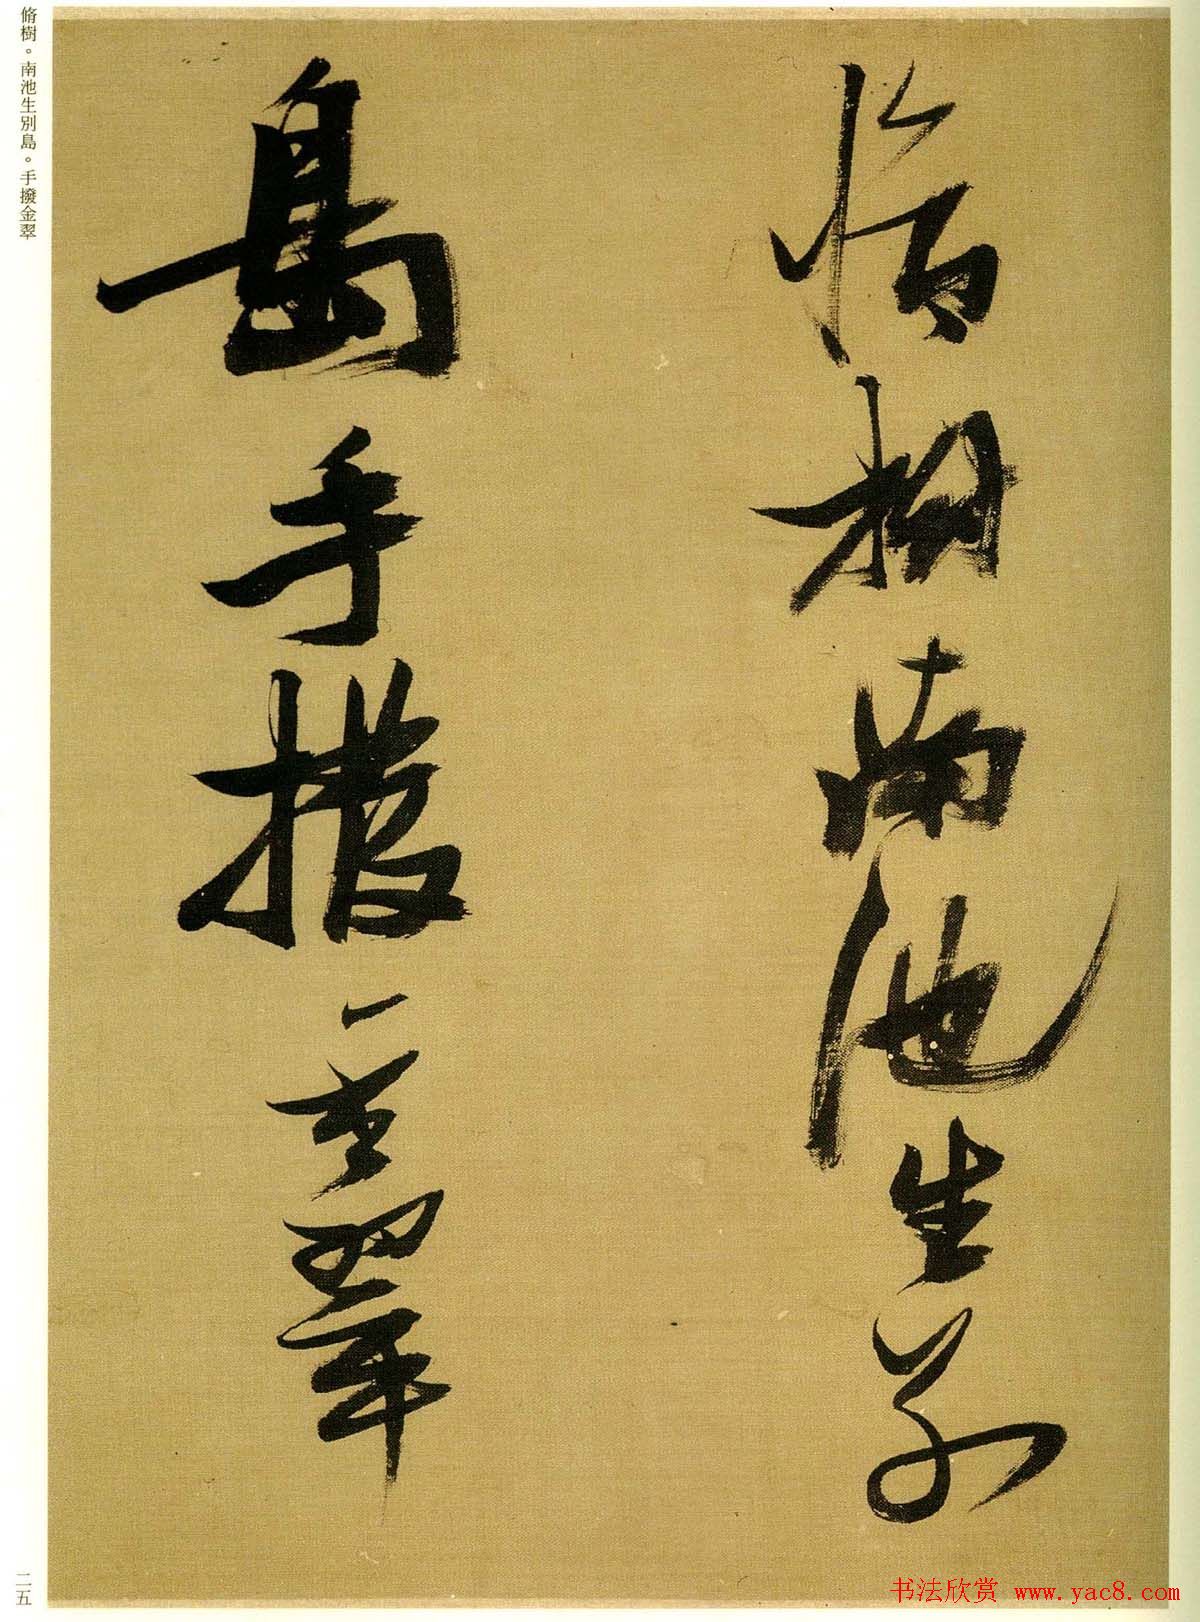 脩樹南池生別
島手撥金翠
脩樹。南池生別島。手撥金翠
二五
书法欣赏 www.yac8.com